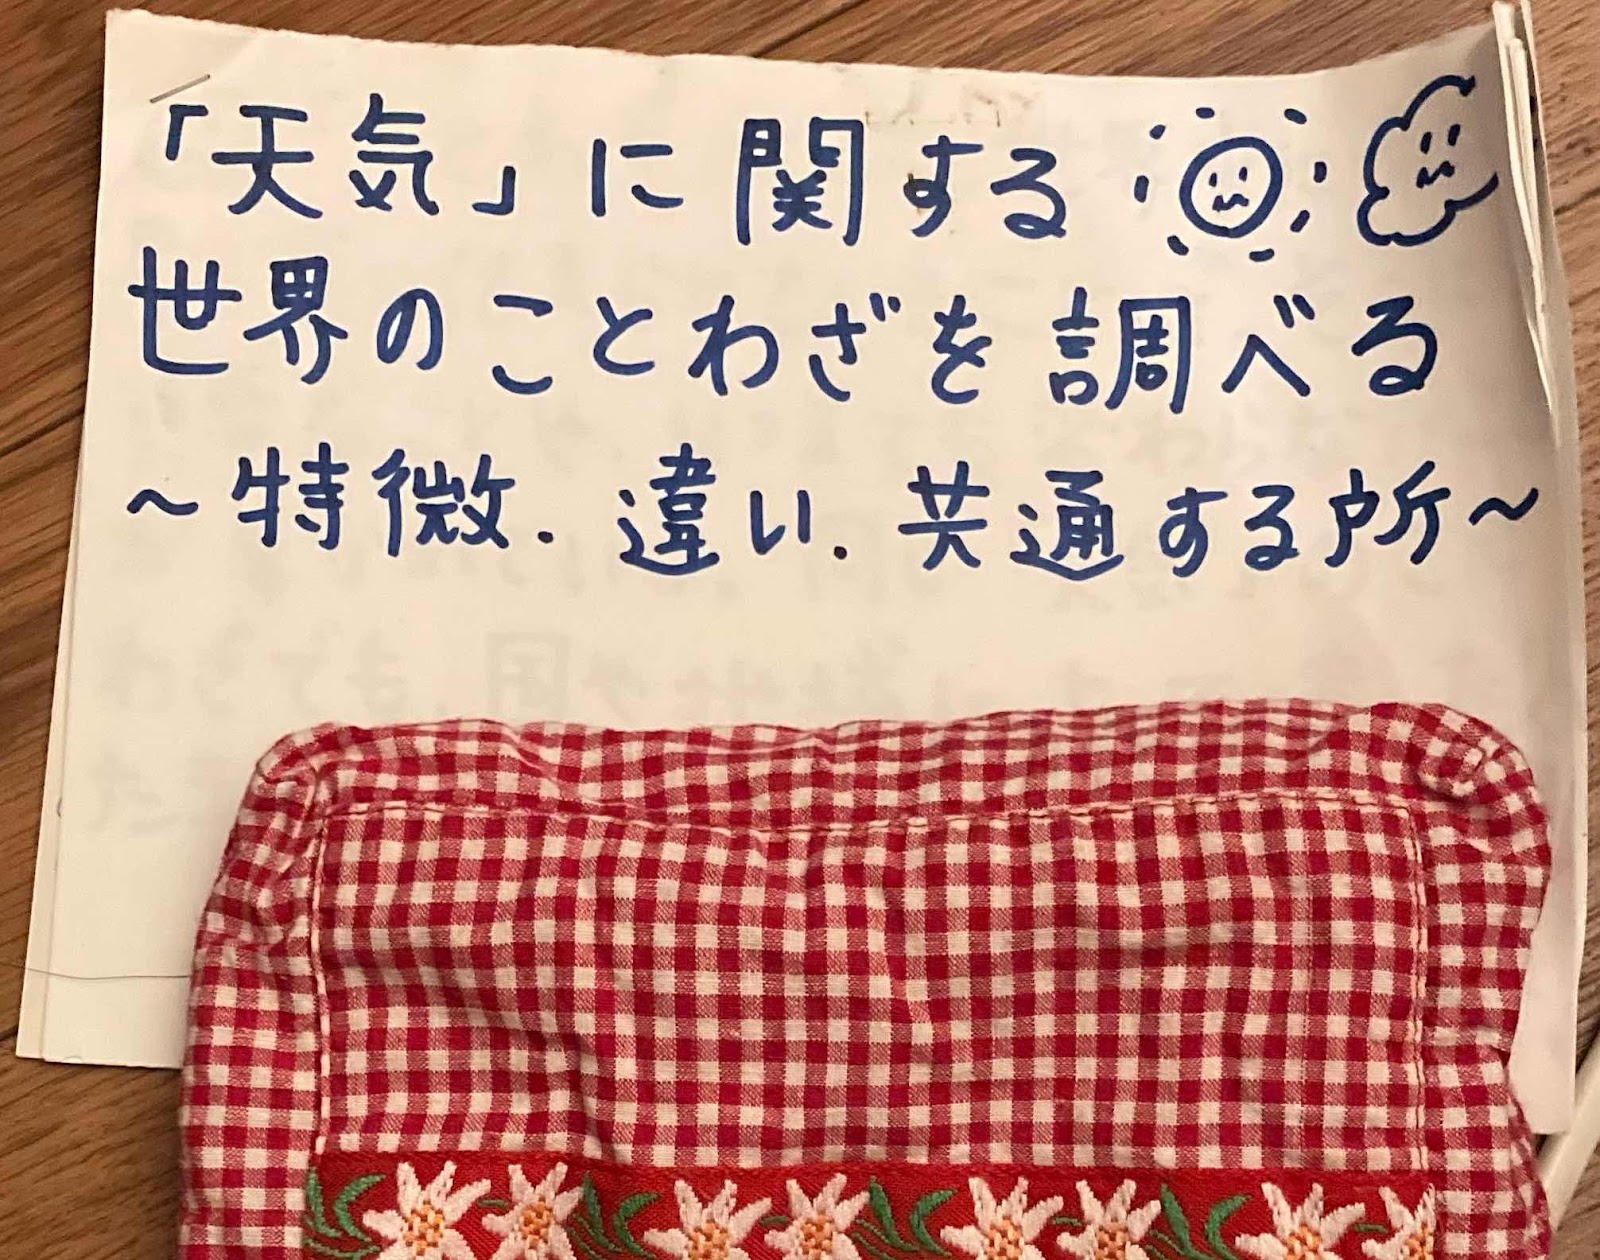 「天気」に関する
世界のことわざを調べる
~特微.違い.共通する所~